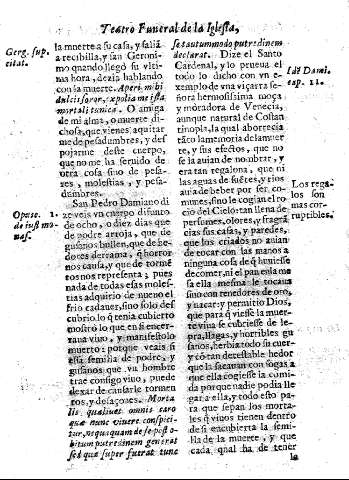 Teatro Funeral de la Iglesia,
Gerg. sup.
citat.
la muerte a su casa, y salia
a recibilla, y san Geroni-
mo quando llegò su vlti-
ma hora, dezia hablando
con la muerte. Aperi mihi
dulcis soror, expolia me ista
mortali tunica. O amiga
de mi alma, o muerte di-
chosa, que vienes a quitar
me de pesadumbres, y des
pojarme deste cuerpo,
que no me ha seruido de
otra cosa sino de pesa-
res, molestias, y pesa-
dumbres.
Opusc. 1.
San Pedro Damiano di
ze veis vn cuerpo difunto
de ocho, o diez dias que
de podre arroja, que de
gusanos bullen, que de he-
dores derrama, q̃ horror
nos causa, y que de tormē
tos nos representa; pues
nada de todas esas moles-
tias adquirio de nueuo el
frio cadauer, sino solo des
cubrio lo q̃ tenia cubierto
mostrò lo que en si encer-
raua viuo, y manifestolo
muerto: porque veais si
està semilla de podre, y
gusanos que vn hombre
trae consigo viuo, puede
dexar de causarle tormen
tos, y desaçones. Morta
lis qualibet omnis caro
quæ nunc viuere conspici-
tur, nequaquam de se posto-
bitum putredinem generat
sed quæ super futrat tunc
se tantummodo putredinem
declarat. Dize el Santo
Cardenal, y lo prueua el
todo lo dicho con vn e-
xemplo de vna viçarra se-
ñora hermosissima moça
y moradora de Venecia,
aunque natural de Costan
tinopla, la qual aborrecia
tãto la memoria de la muer
te, y sus efectos, que no
se la auian de nombrar, y
era tan regalona, que ni
las aguas de fuētes, y rios
auia de beber por ser co-
munes, sino le cogian el ro
cio del Cielo: tan llena de
persomes, olores, y fragrā
cias sus casas, y paredes,
que los criados no auian
de tocar con las manos a
ninguna cosa de q̃ huuiesse
de comer, ni el pan en la me
sa ella mesma le tocaua
sino con tenedores de oro,
y nacar: y permitio Dios,
que para q̃ viesse la muer-
te viua se cubriesse de le-
pra, llagas, y horribles gu
sanos, herbia todo su cuer-
y cõ tan detestable hedor
que la sacauan con sogas a
que ella cogiesse la comi-
da porque nadie podia lle
gar a ella, y todo esto pa-
ra que sepan los morta-
les q̃ viuos tienen dentro
de si encubierta la semi-
lla de la muerte, y que
cada qual ha de tener
Idē Dami.
cap. 11.
Los rega
los son
mas cor-
ruptibles.
la